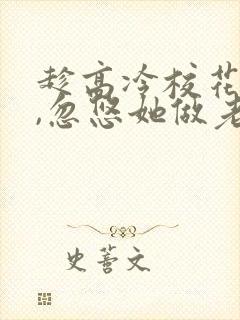 趁高冷校花
,忽悠她做老
史萱文